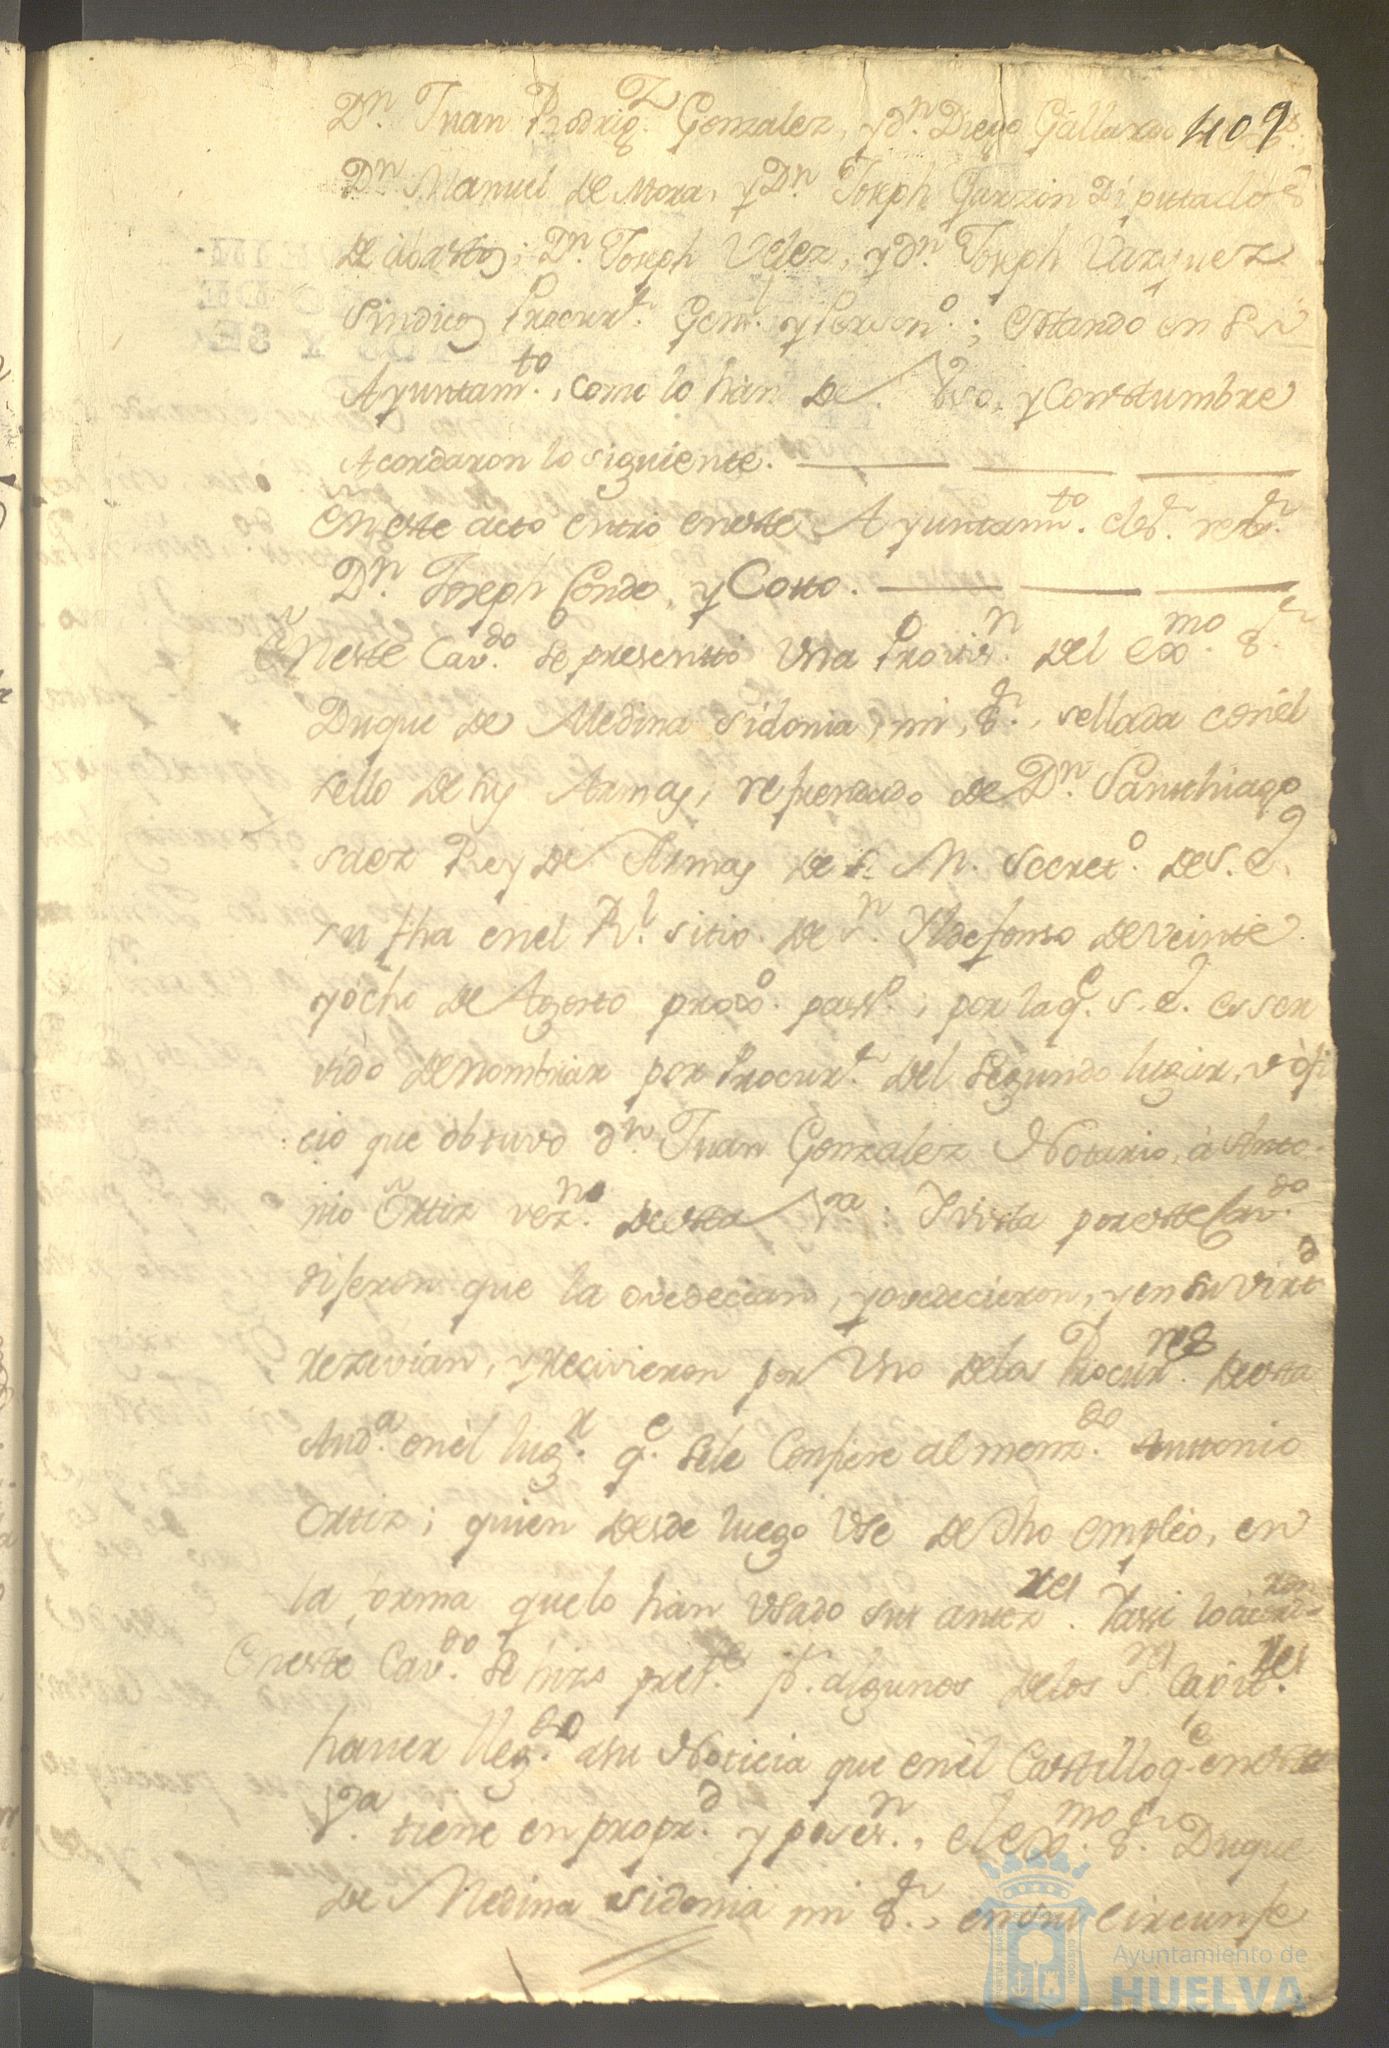 409
Dn. Juan Rodrigz. Gonzalez, y dn. Diego Gallardo
Dn. Manuel de Mora, y Dn. Joseph Garzin Diputados
de abastos; Dn. Joseph Velez, y dn. Joseph Vazquez
Sindicos Procurr. Genl. y Person.o; estando en su
Ayuntamto., como lo han de Vso, y Constumbre
Acordaron lo siguiente.
En este acto entró en este Ayuntamto. el sr. rexr.
Dn. Joseph Conde, y Cotto.
En este Cavdo. se presentó Vna Provisn. del exmo. Sr.
Duque de Medina Sidonia, mi Sr., sellada con el
sello de sus Armas, refrendado de Dn. Santhiago
Saez Rey de Armas de S. M. Secreto. de S. E.
su fha en el Rl. sitio de Sn. Yldefonso de veinte
y ocho de Agosto proxo. passo.; por la qe. S. E. es ser
vido de nombrar por Procurr. del Segundo lugar, v ofi
cio que obtuvo dn. Juan Gonzalez Notario, à Anto
nio Ortiz vezno. de esta Va.: Y vista por este Cavdo.
dijeron que la ovedecian, y ovedecieron, y en su virtd
rezivian, y recivieron por Vno de los Procurres. de esta
Auda. en el lugr. qe. se le Confiere al menzdo. Anttonio
Ortiz; quien desde luego Vse de dho empleo, en
la forma que lo han Vsado sus antezres. Y assi lo acordaron
En este Cavdo. se hizo prete. pr. algunos de los Sres. Capitres.
haver llegdo. a su Noticia que en el Castillo qe. en esta
Va. tiene en proprd. y posesn., el exmo. Sr. Duque
de Medina Sidonia mi Sr., en su circunfe
Ayuntamiento de
HUELVA